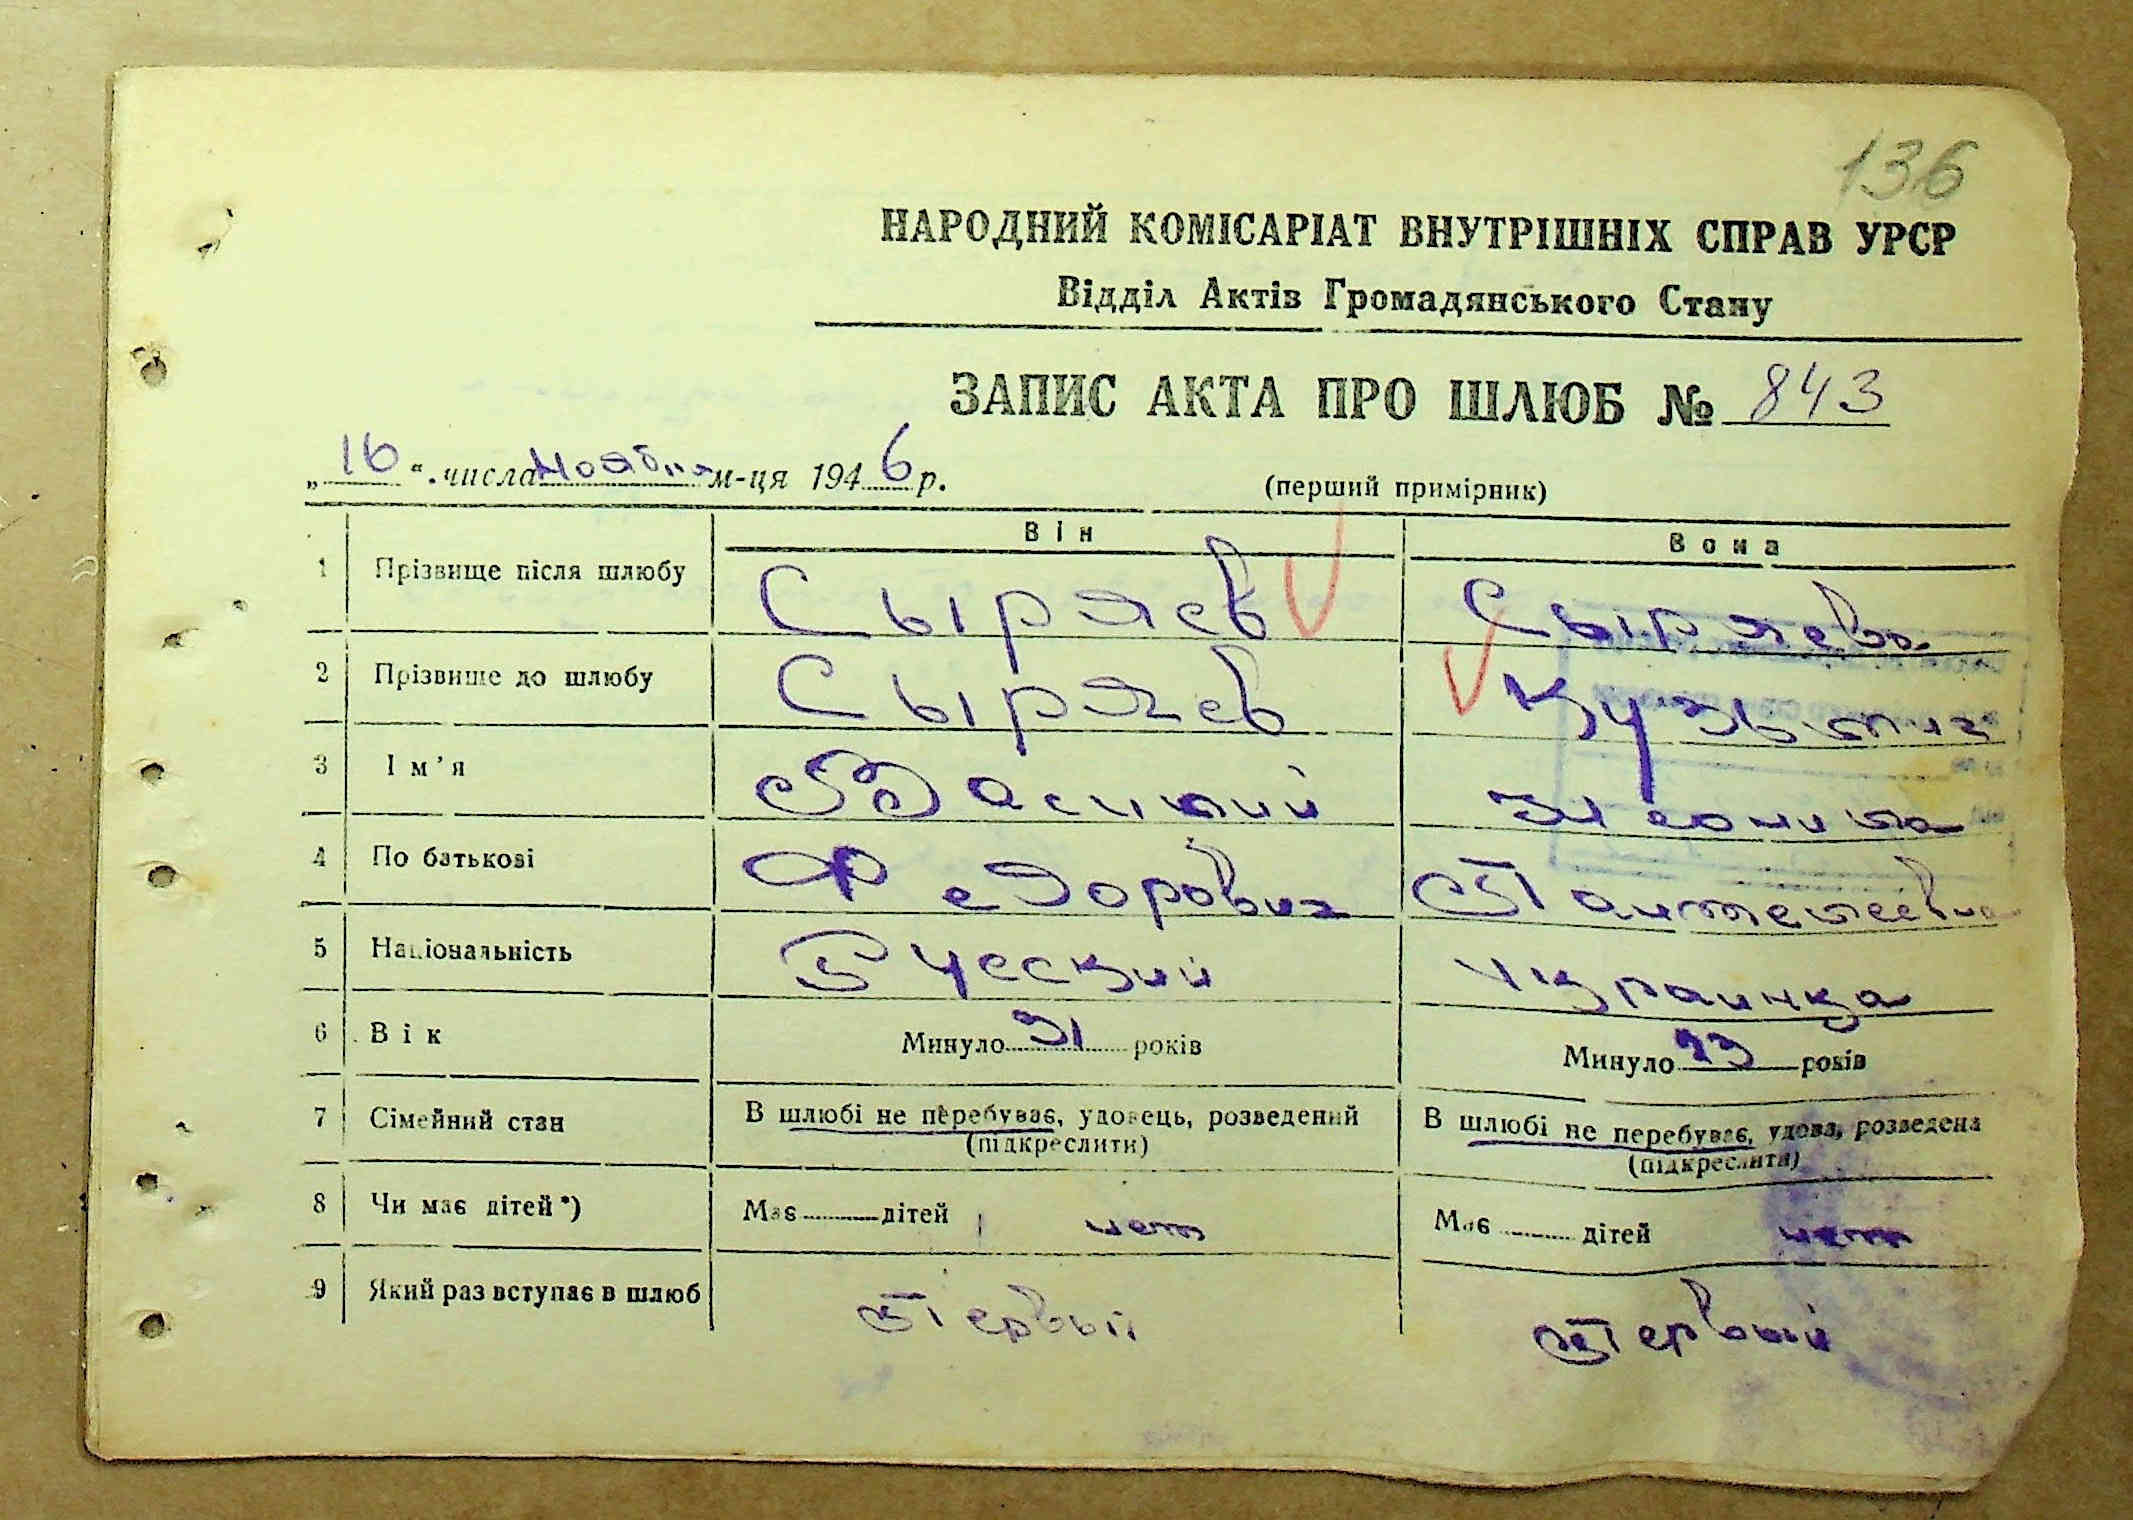 136
НАРОДНИЙ КОМІСАРІАТ ВНУТРІШНІХ СПРАВ УРСР
Відділ Актів Громадянського Стану
ЗАПИС АКТА ПРО ШЛЮБ № 843
„16“ числа ноября м-ця 1946 р.
(перший примірник)
Він Вона
1 Прізвище після шлюбу Сыряев Сыряева
2 Прізвище до шлюбу Сыряев
3 Ім’я Василий Леонила
4 По батькові Федорович Пантелеевна
5 Національність Русский Украинка
6 Вік Минуло 31 років Минуло 23 років
7 Сімейний стан В шлюбі не перебуває, удовець, розведений В шлюбі не перебуває, удова, розведена
(підкреслити) (підкреслити)
8 Чи має дітей*) Має дітей нет Має дітей нет
9 Який раз вступає в шлюб Первый Первый